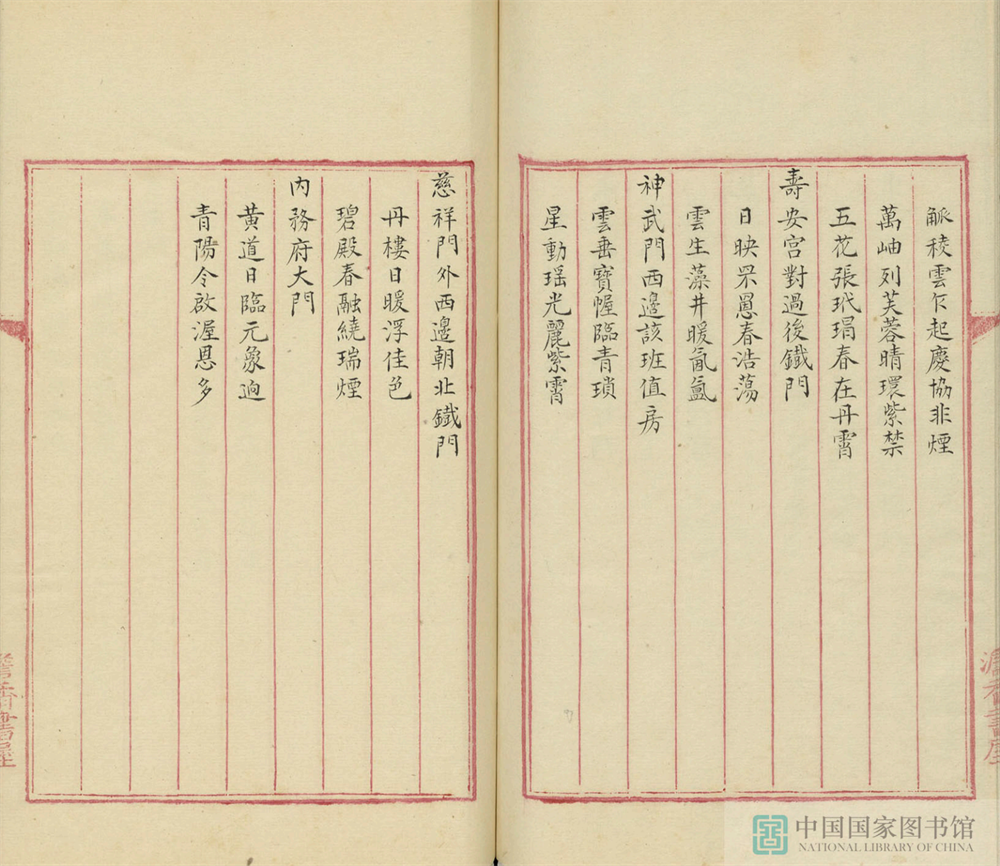 觚稜雲乍起慶協非煙
萬岫列芙蓉晴環紫禁
五花張玳瑁春在丹霄
壽安宮對過後鐵門
日映罘罳春浩蕩
雲生藻井暖氤氳
神武門西邊該班值房
雲垂寶幄臨青瑣
星動瑶光麗紫霄
慈祥門外西邊朝北鐵門
丹樓日暖浮佳色
碧殿春融繞瑞煙
內務府大門
黃道日臨元象迥
青陽令啟渥恩多
中国国家图书馆
NATIONAL LIBRARY OF CHINA